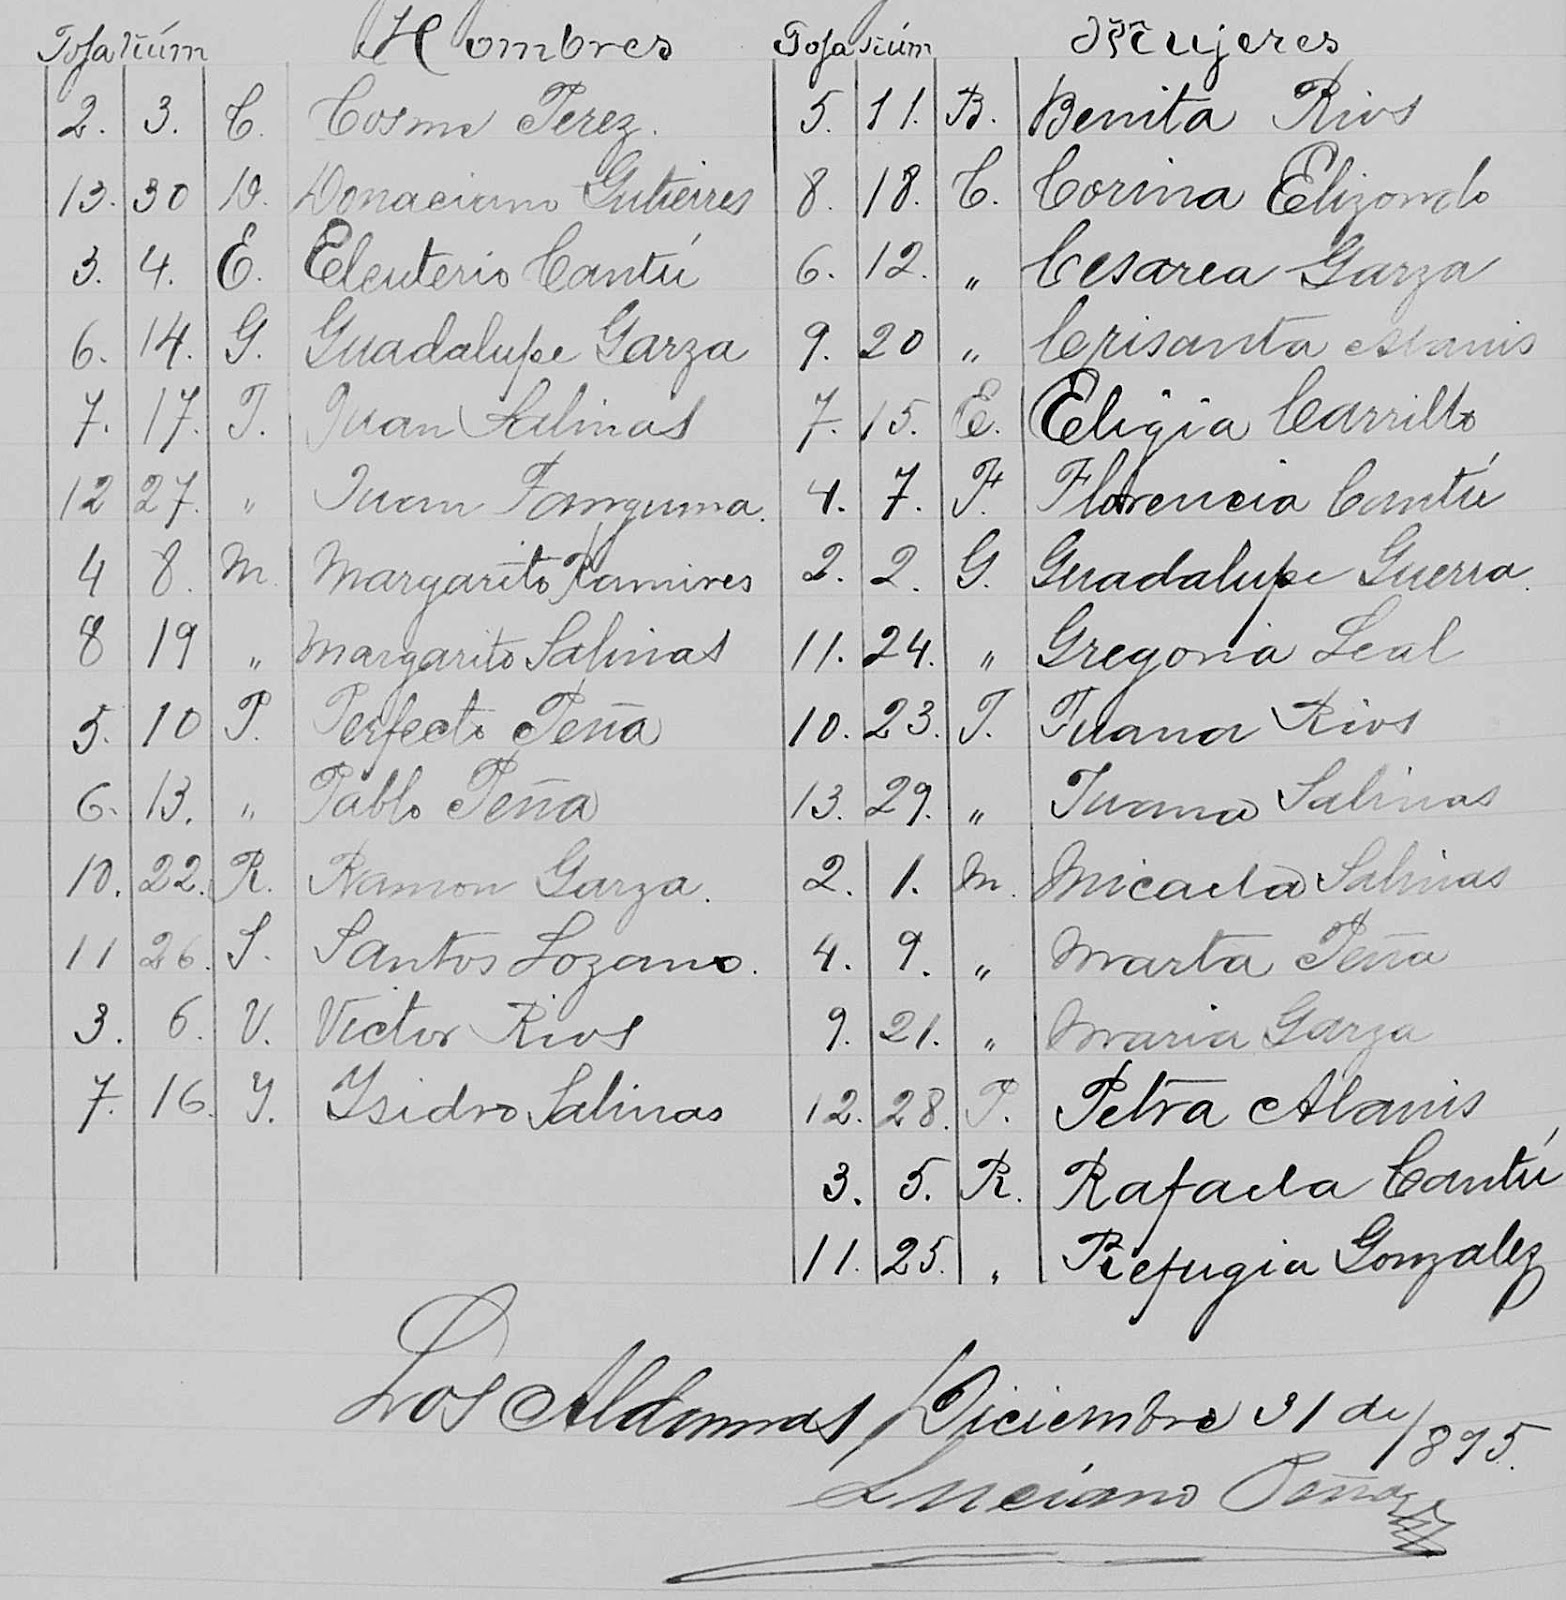 Foja Núm Hombres Foja Núm Mujeres
2. 3. C. Cosme Perez. 5. 11. B. Benita Rios
13. 30 D. Donaciano Gutierres 8. 18. C. Corina Elizondo
3. 4. E. Eleuterio Cantú 6. 12. " Cesarea Garza
6. 14. G. Guadalupe Garza 9. 20 " Crisanta Alanis
7. 17. J. Juan Salinas 7. 15. E. Eligia Carrillo
12 27. " Juan Tanguma. 4. 7. F. Florencia Cantú
4 8. M. Margarito Ramires 2. 2. G. Guadalupe Guerra.
8 19 " Margarito Salinas 11. 24. " Gregoria Leal
5. 10 P. Perfecto Peña 10. 23. J. Juana Rios
6. 13. " Pablo Peña 13. 29. " Juana Salinas
10. 22. R. Ramon Garza. 2. 1. M. Micaela Salinas
11 26. S. Santos Lozano. 4. 9. " Marta Peña
3. 6. V. Victor Rios 9. 21. " Maria Garza
7. 16. Y. Ysidro Salinas 12. 28. P. Petra Alanis
3. 5. R. Rafaela Cantú
11. 25. " Refugia Gonzalez
Los Aldamas, Diciembre 31 de 1895.
Luciano Peña